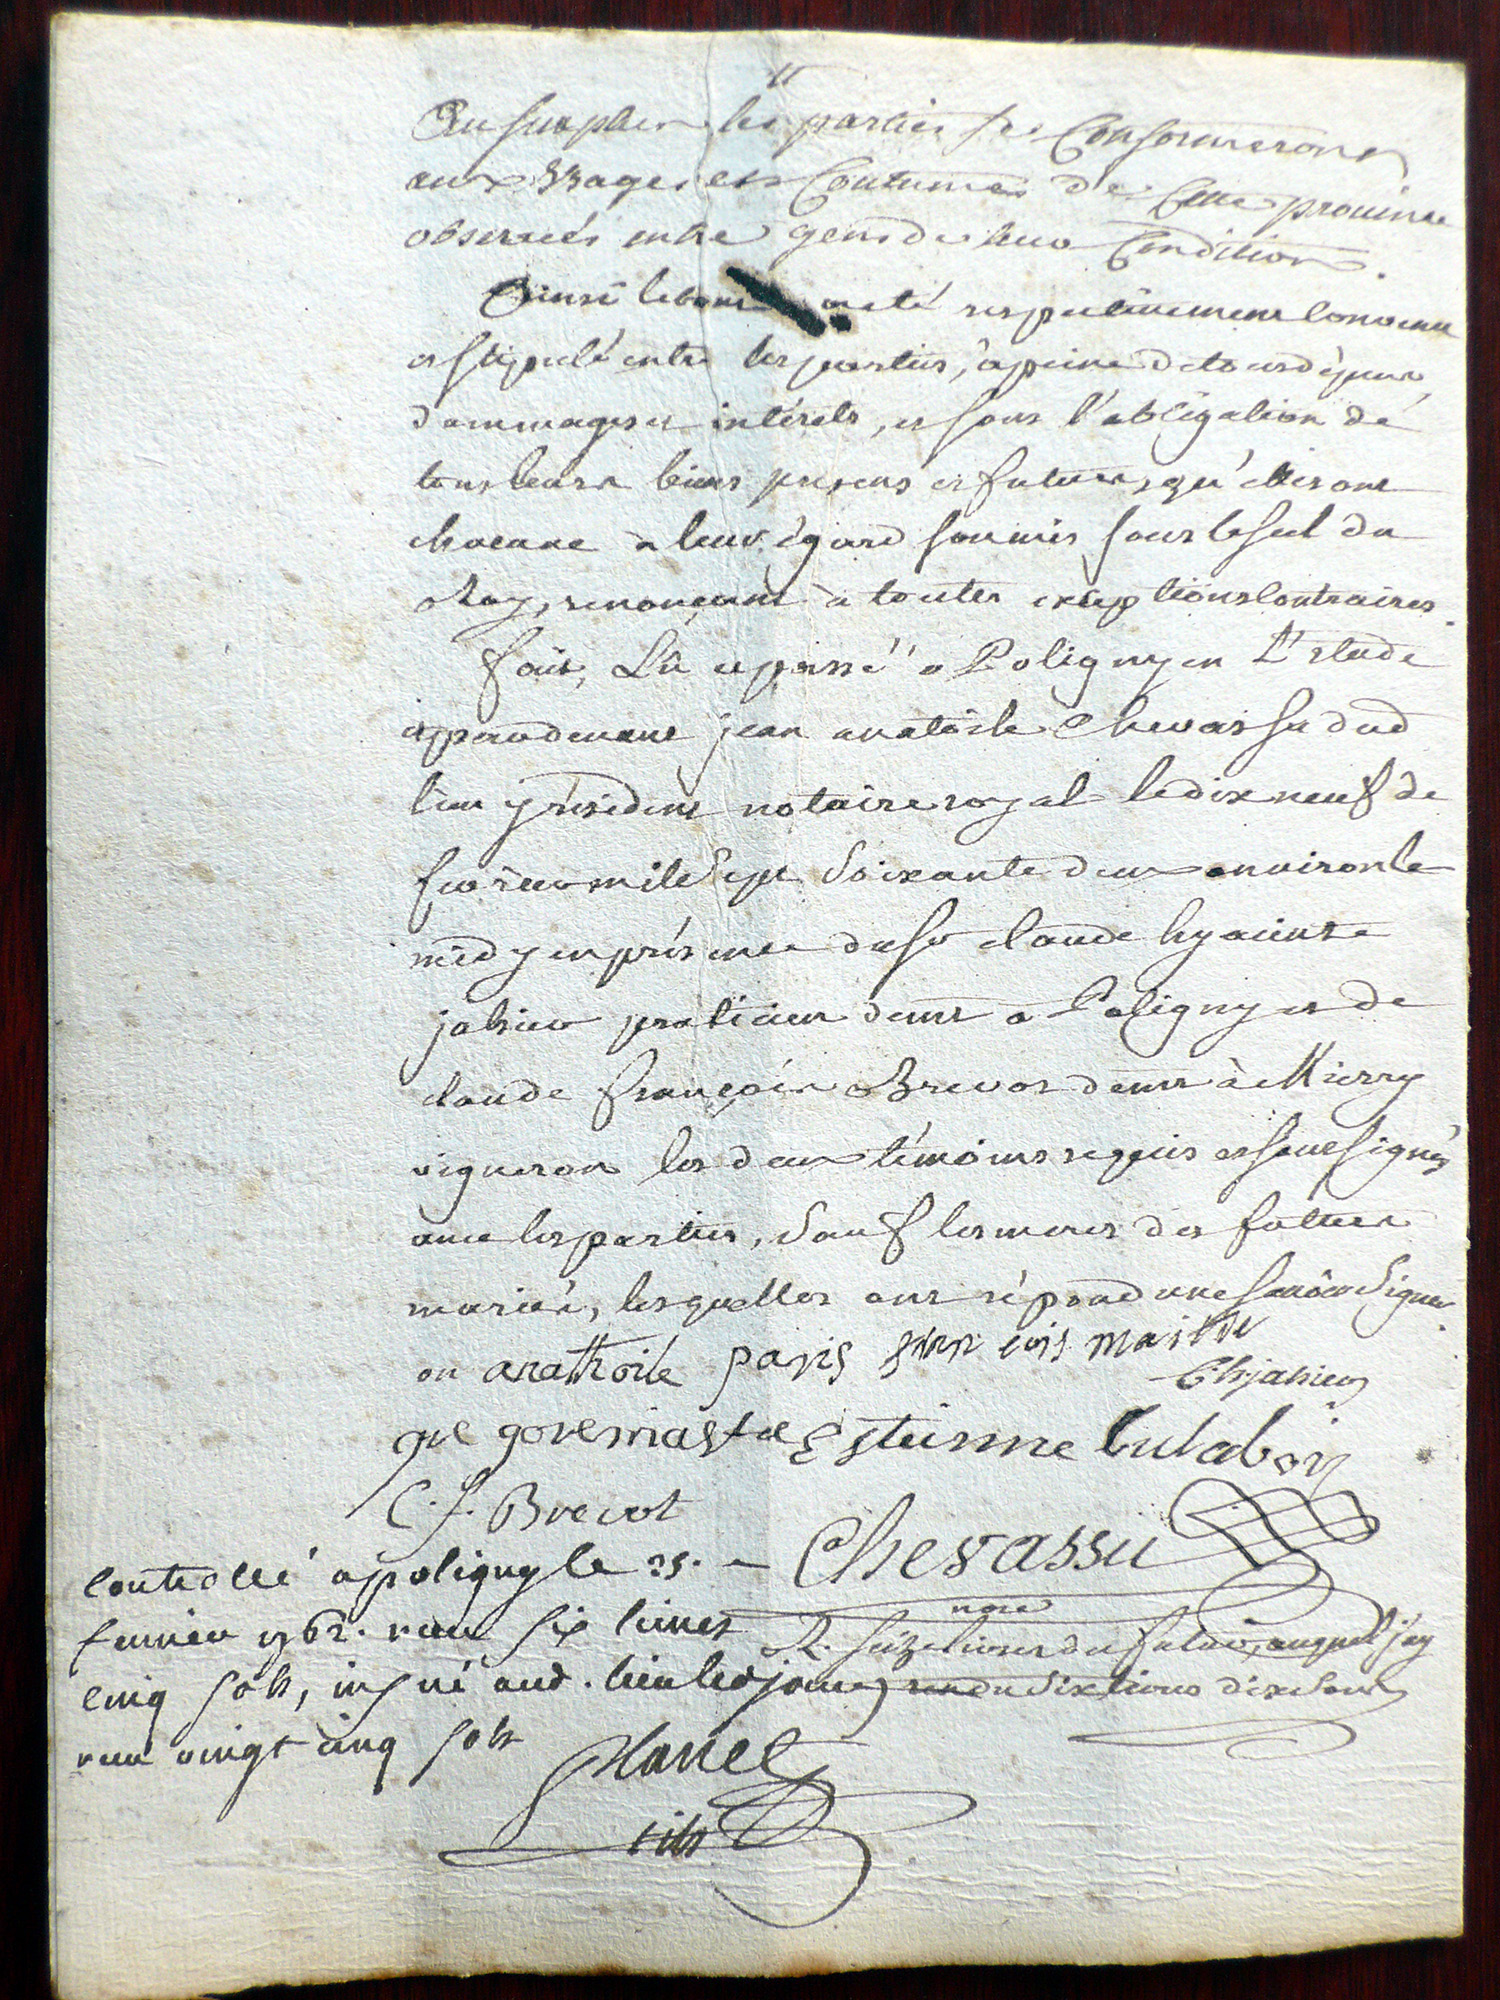 Au surplus les parties se Conformeront
aux Usages et Coutumes de Cette province
observées entre gens de leur Condition.
Ainsi le tout a eté respectivement convenu
et stipulé entre les parties, à peine de tous dépens,
dommages et intérets, et sous l'obligation de
tous leurs biens présens et futurs, qu'elles ont
chacune à leur égard soumis sous le scel du
Roy, renonçant à toutes exceptions contraires.
fait, Lû et passé à Poligny en L'Etude
et pardevant jean anatoile Chevassu dud
lieu y résident notaire royal le dix neuf de
fevrier mile Sept Soixante deux environ le
midy en présence du sr claude hyacinte
jahier praticien demt a Poligny et de
claude françois Brevot demt à Mierry
vigneron les deux témoins requis et soussignés
avec les parties, Sauf les meres des futurs
mariés, lesquelles ont répondu ne savoir Signer.
anathoile paris fran cois maitre
Ch jahier
Estienne
C. f. Brevot
Chevassu
nore
controllé a poligny le 25.
fevrier 1762. reçu six livres
cinq sols, insiné aud. lieu led jour
reçu vingt cinq sols
R. seize livres du futur, auquel j'ay
rendu dix livres dix sols